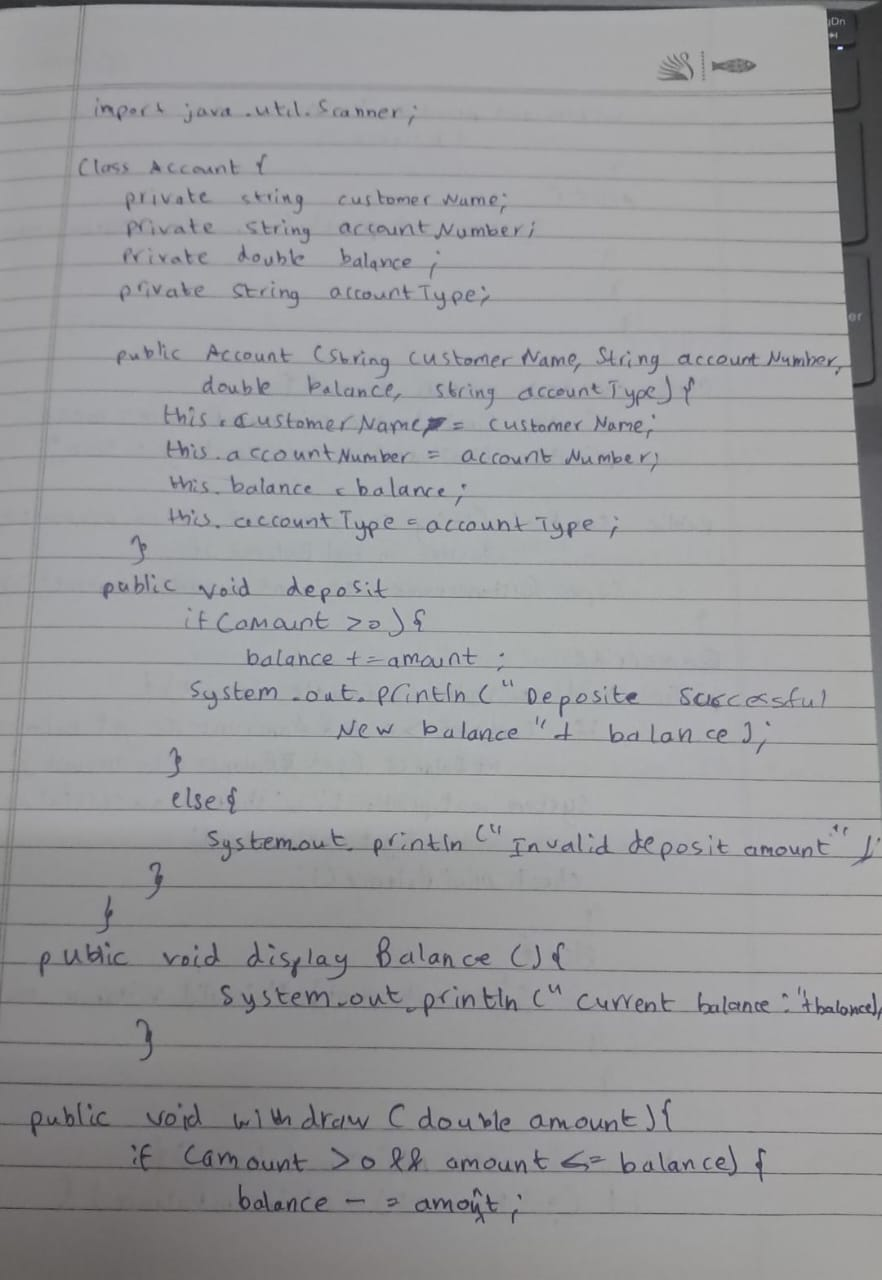 import java.util.Scanner;
Class Account {
private string customerName;
private string accountNumber;
private double balance;
private string accountType;
public Account (String customerName, String accountNumber,
double balance, string accountType) {
this.customerName = customerName;
this.accountNumber = accountNumber;
this.balance = balance;
this.accountType = accountType;
}
public void deposit
if (amount >0) {
balance += amount ;
System.out.println (" Deposite successful
New balance "+ balance );
}
else {
System.out.println (" Invalid deposit amount" );
}
}
public void display Balance () {
System.out.println (" current balance : "+balance);
}
public void withdraw ( double amount) {
if (amount > 0 && amount <= balance) {
balance - = amount ;